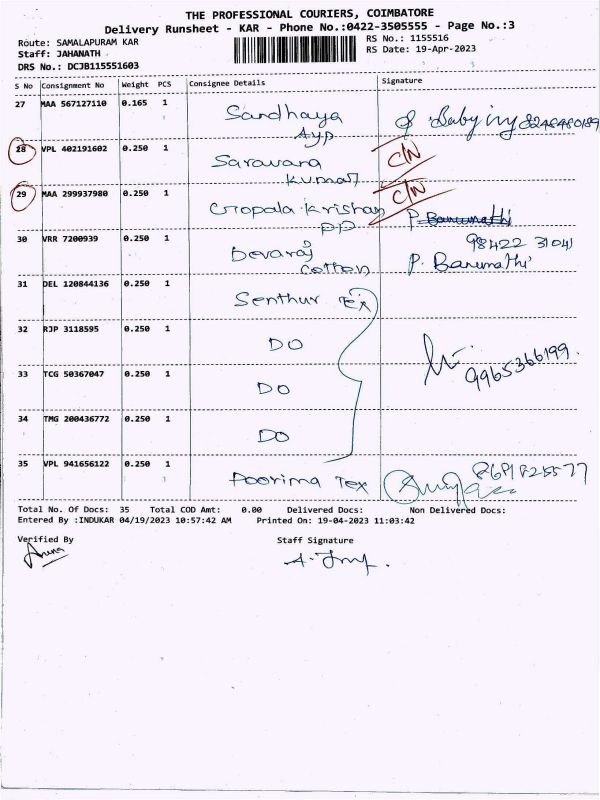 THE PROFESSIONAL COURIERS, COIMBATORE
Delivery Runsheet - KAR - Phone No.:0422-3505555 - Page No.:3
Route: SAMALAPURAM KAR
Staff: JAHANATH
DRS No.: DCJB115551603
RS No.: 1155516
RS Date: 19-Apr-2023
S No Consignment No Weight PCS Consignee Details Signature
27 MAA 567127110 0.165 1 Sandhaya Ayp
28 VPL 402191602 0.250 1 Saravana Kumar C/N
29 MAA 299937980 0.250 1 Gopala Krishan PP C/N P. Banumathi
30 VRR 7200939 0.250 1 Devaraj Cotton 98422 31041 P. Banumathi
31 DEL 120844136 0.250 1 Senthur Tex
32 RJP 3118595 0.250 1 DO
33 TCG 50367047 0.250 1 DO 9965366199.
34 TMG 200436772 0.250 1 DO
35 VPL 941656122 0.250 1 Poorima Tex
Total No. Of Docs: 35 Total COD Amt: 0.00 Delivered Docs: Non Delivered Docs:
Entered By :INDUKAR 04/19/2023 10:57:42 AM Printed On: 19-04-2023 11:03:42
Verified By Staff Signature
Aruna